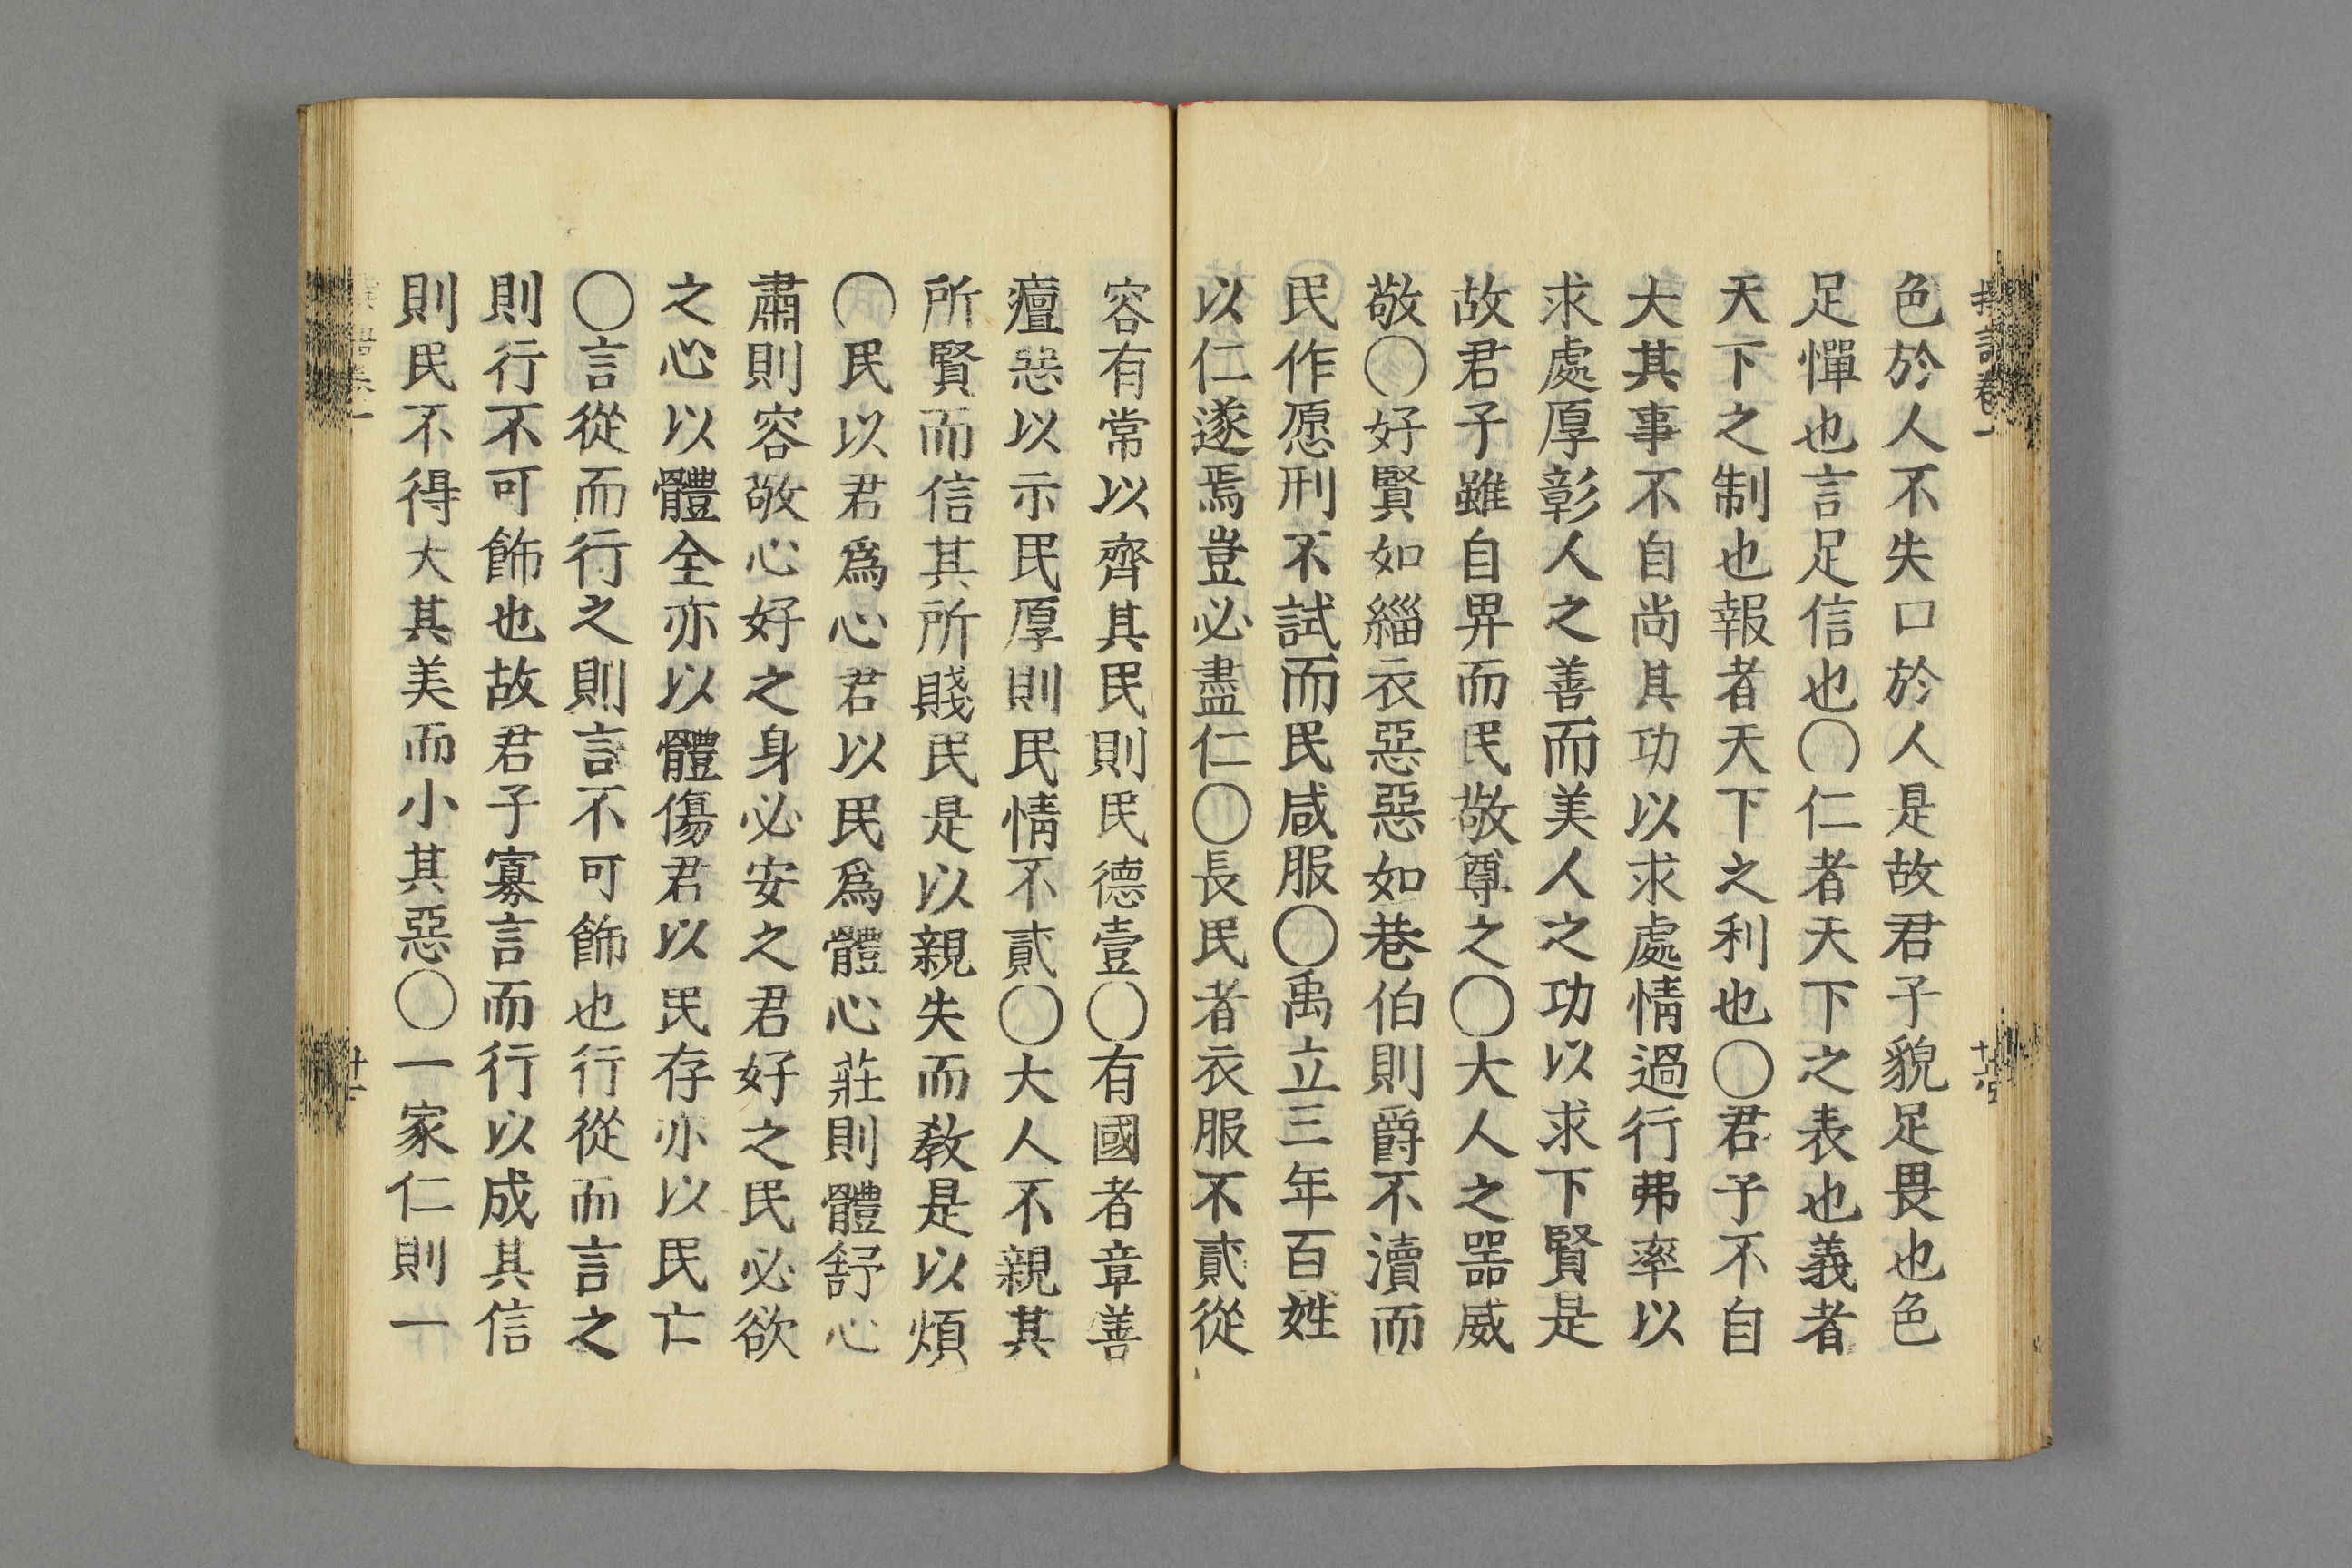 色於人不失口於人是故君子貌足畏也色
足憚也言足信也〇仁者天下之表也義者
天下之制也報者天下之利也〇君子不自
大其事不自尚其功以求處情過行弗率以
求處厚彰人之善而美人之功以求下賢是
故君子雖自畀而民敬尊之〇大人之器威
敬〇好賢如緇衣惡惡如巷伯則爵不瀆而
民作愿刑不試而民咸服〇禹立三年百姓
以仁遂焉豈必盡仁〇長民者衣服不貳從
容有常以齊其民則民德壹〇有國者章善
癉惡以示民厚則民情不貳〇大人不親其
所賢而信其所賤民是以親失而教是以煩
〇民以君爲心君以民爲體心莊則體舒心
肅則容敬心好之身必安之君好之民必欲
之心以體全亦以體傷君以民存亦以民亡
〇言從而行之則言不可飾也行從而言之
則行不可飾也故君子寡言而行以成其信
則民不得大其美而小其惡〇一家仁則一